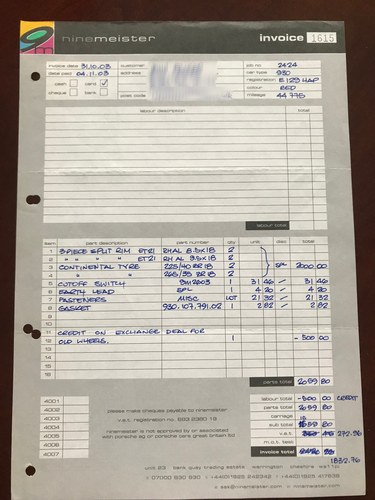 ninemeister invoice 1615
invoice date 31.10.03 customer job no. 2424
date paid 04.11.03 address car type 930
cash card ✓ registration E129 HAP
cheque bank colour RED
post code mileage 44775
labour description total
labour total
item part description part number qty unit disc total
1 3-PIECE SPLIT RIM ET21 RH AL 8.5x18 2
2 " " " " ET21 RH AL 9.5x18 2
3 CONTINENTAL TYRE 225/40 ZR 18 2 SP 2000 00
4 " " 265/35 ZR 18 2
5 CUTOFF SWITCH 1 31 46 31 46
6 EARTH LEAD 1 4 20 4 20
7 FASTENERS MISC LOT 21 32 21 32
8 GASKET 930.107.791.02 1 2 82 2 82
9
10
11 CREDIT ON EXCHANGE DEAL FOR
12 OLD WHEELS. 1 - 500 00
13
14
15
16
parts total 2059 80
4001
4002
4003
4004
4005
4006
4007
please make cheques payable to ninemeister
v.a.t. registration no. 693 2380 16
ninemeister is not approved by or associated
with porsche ag or porsche cars great britain ltd
labour total -500 00 CREDIT
parts total 2059 80
carriage
sub total
v.a.t. 272.96
m.o.t. test
invoice total
1832.76
unit 23 bank quay trading estate warrington cheshire wa1 1pj